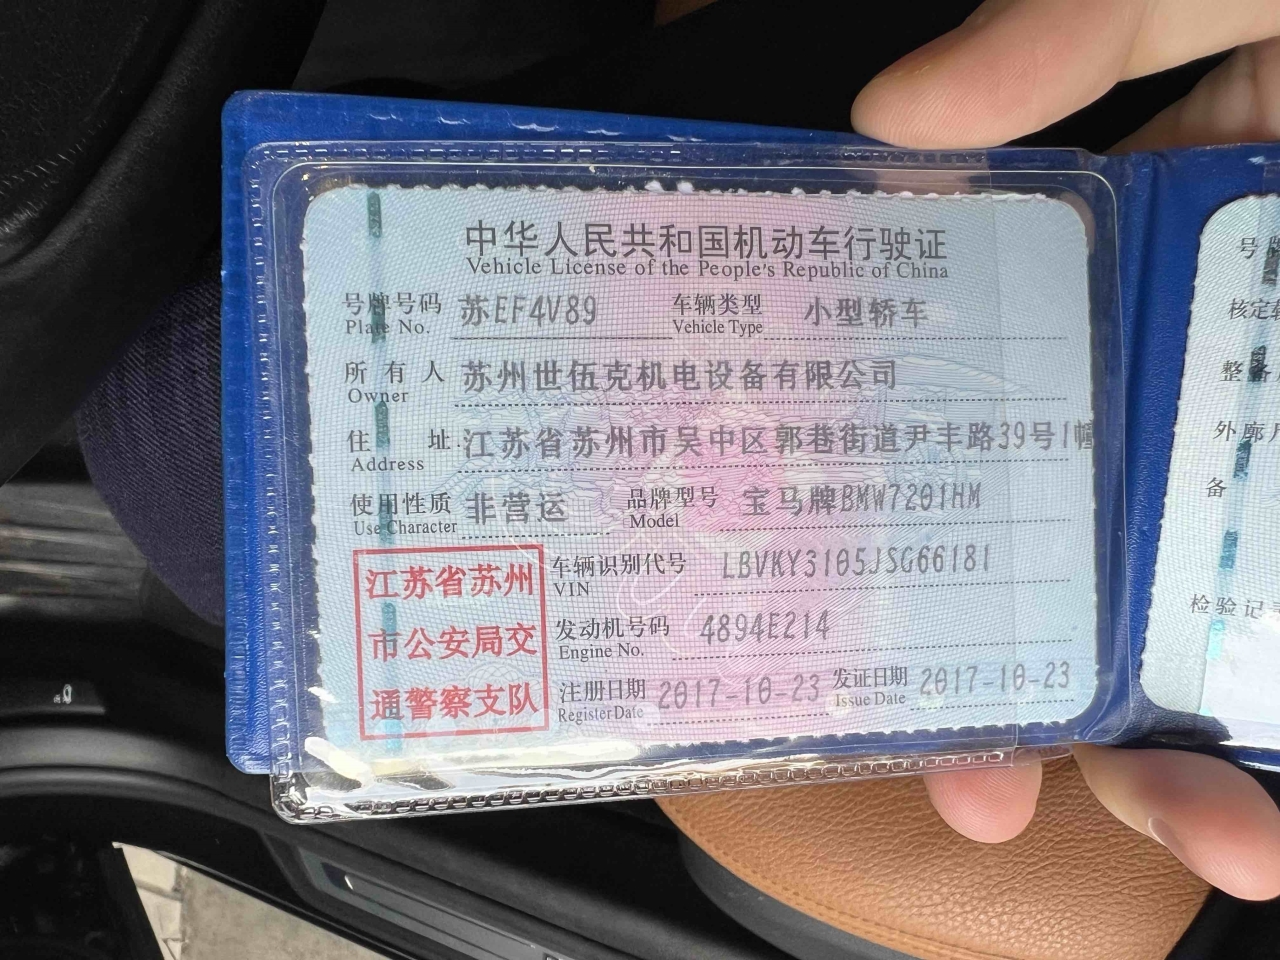 中华人民共和国机动车行驶证
Vehicle License of the People's Republic of China
号牌号码 苏EF4V89 车辆类型 小型轿车
Plate No. Vehicle Type
所有人 苏州世伍克机电设备有限公司
Owner
住址 江苏省苏州市吴中区郭巷街道尹丰路39号1幢
Address
使用性质 非营运 品牌型号 宝马牌BMW7201HM
Use Character Model
车辆识别代号 LBVKY3105JSG66181
VIN
发动机号码 4894E214
Engine No.
注册日期 2017-10-23 发证日期 2017-10-23
Register Date Issue Date
江苏省苏州
市公安局交
通警察支队
号牌
核定
整备
外廓
备
检验记